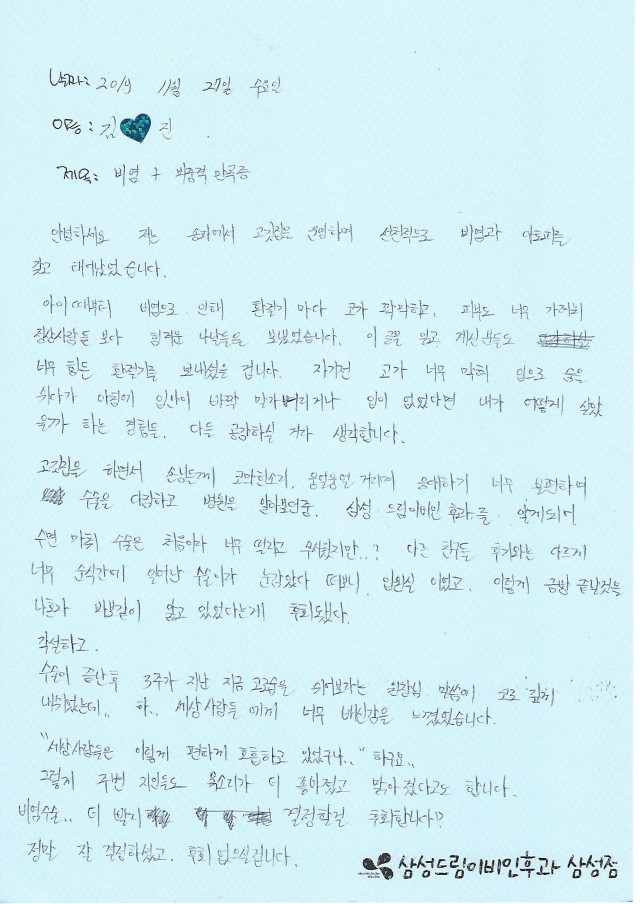 날짜: 2019 11월 27일 수요일
이름: 김 진
제목: 비염 + 비중격 만곡증
안녕하세요 저는 송파에서 고깃집은 운영하며 선천적으로 비염과 아토피를
갖고 태어났었습니다.
아이때부터 비염으로 인해 환절기 마다 코가 꽉막히고, 피부도 너무 가려워
정상사람들 보다 힘겨운 나날들을 보냈었습니다. 이 글을 읽고 계신분들도
너무 힘든 환절기를 보내셨을 겁니다. 자기전 코가 너무 막혀 입으로 숨을
쉬다가 아침에 입안이 바짝 말라버리거나 입이 없었다면 내가 어떻게 살았
을까 하는 경험들. 다들 공감하실 거라 생각합니다.
고깃집을 하면서 손님들께 코막힌소리. 웅얼웅얼 거리며 응대하기 너무 불편하여
수술을 다짐하고 병원을 알아보던중. 삼성 드림이비인후과를 알게되어
수면 마취 수술은 처음이라 너무 떨리고 무서웠지만..? 다른 친구들 후기와는 다르게
너무 순식간에 일어난 수술이라 눈감았다 떠보니 입원실 이었고. 이렇게 금방 끝날것을
나혼자 바보같이 앓고 있었다는게 후회됐다.
각설하고.
수술이 끝난후 3주가 지난 지금 코로숨을 쉬어보라는 원장님 말씀에 코로 깊게
내쉬었는데.. 하.. 세상 사람들 에게 너무 배신감을 느꼈었습니다.
"세상사람들은 이렇게 편하게 호흡하고 있었구나.." 하구요..
그렇게 주변 지인들도 목소리가 더 좋아졌고 맑아 졌다고도 합니다.
비염수술.. 더 빨리 결정할걸 후회합니다?
정말 잘 결정하셨고. 후회 없으실겁니다.
삼성드림이비인후과 삼성점